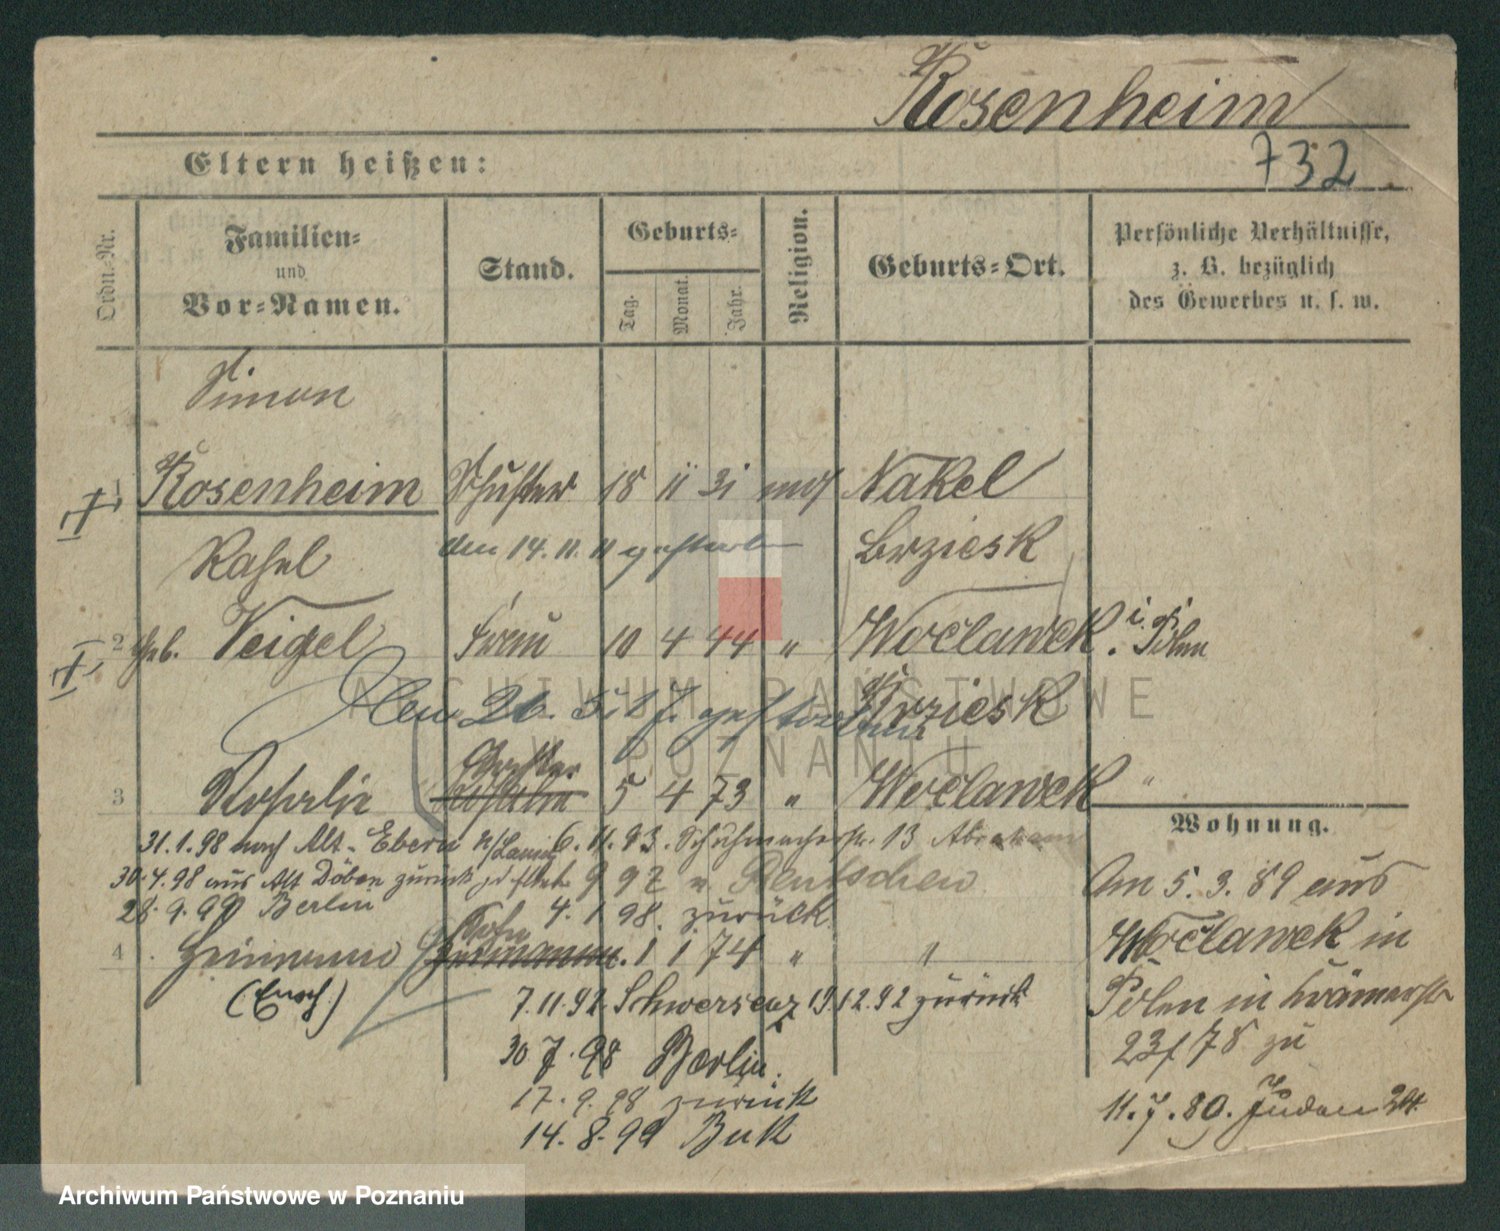 Rosenheim
732
Eltern heißen:
Ordn.-Nr.
Familien-
und
Vor-Namen.
Stand.
Geburts-
Tag.
Monat.
Jahr.
Religion.
Geburts-Ort.
Persönliche Verhältnisse,
z. B. bezüglich
des Gewerbes u. s. w.
Simon
1 Rosenheim Schuster 18 11 31 mos Nakel
den 14. 11. 11 gestorben
Rahel Brziesk
2 geb. Veigel Frau 10 4 44 " Woclawek i. Polen
den 26. 5. 17. gestorben Brziesk
Tochter
3 Rosalie 5 4 73 " Woclawek "
31.1.98 nach Alt- 6. 11. 93. Schuhmacherstr. 13 Abraham
30.4.98 aus Alt Döbern zurück 9 97 Rentschen
28.9.99 Berlin 4. 1 98. zurück
Sohn
4 Heimann Hermann 1 1 74 " "
(Enoch.)
7.11.92 Schwersenz 19.12.92 zurück
30 7. 98 Berlin
17. 9. 98 zurück
14. 8. 99 Buk
Wohnung.
Am 5. 3. 89 aus
Woclawek in
Polen in Krämerstr
23/78 zu
11. 7. 89. Juden 24.
ARCHIWUM PAŃSTWOWE
W POZNANIU
Archiwum Państwowe w Poznaniu